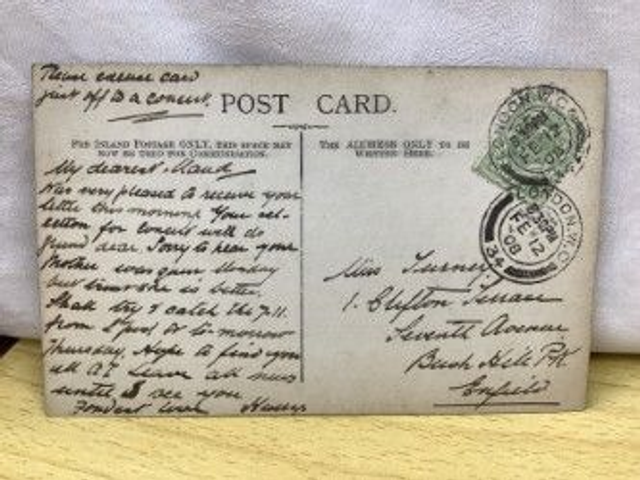 Please excuse card
just off to a concert.
POST CARD.
FOR INLAND POSTAGE ONLY, THIS SPACE MAY
NOW BE USED FOR COMMUNICATION.
THE ADDRESS ONLY TO BE
WRITTEN HERE.
My dearest Maud
Was very pleased to receive your
letter this morning Your sel-
ection for concert will do
grand dear Sorry to hear your
Mother was Monday
but she is better.
Shall try & catch the 7.11.
from L'pool St to-morrow
Thursday. Hope to find you
all A1 Leave all news
until I see you
Fondest love Harry
LONDON.W.C
LONDON.W.C
8.30PM
FE 12
08
34
Miss Turney
1. Clifton Terrace
Seventh Avenue
Bush Hill Pk
Enfield